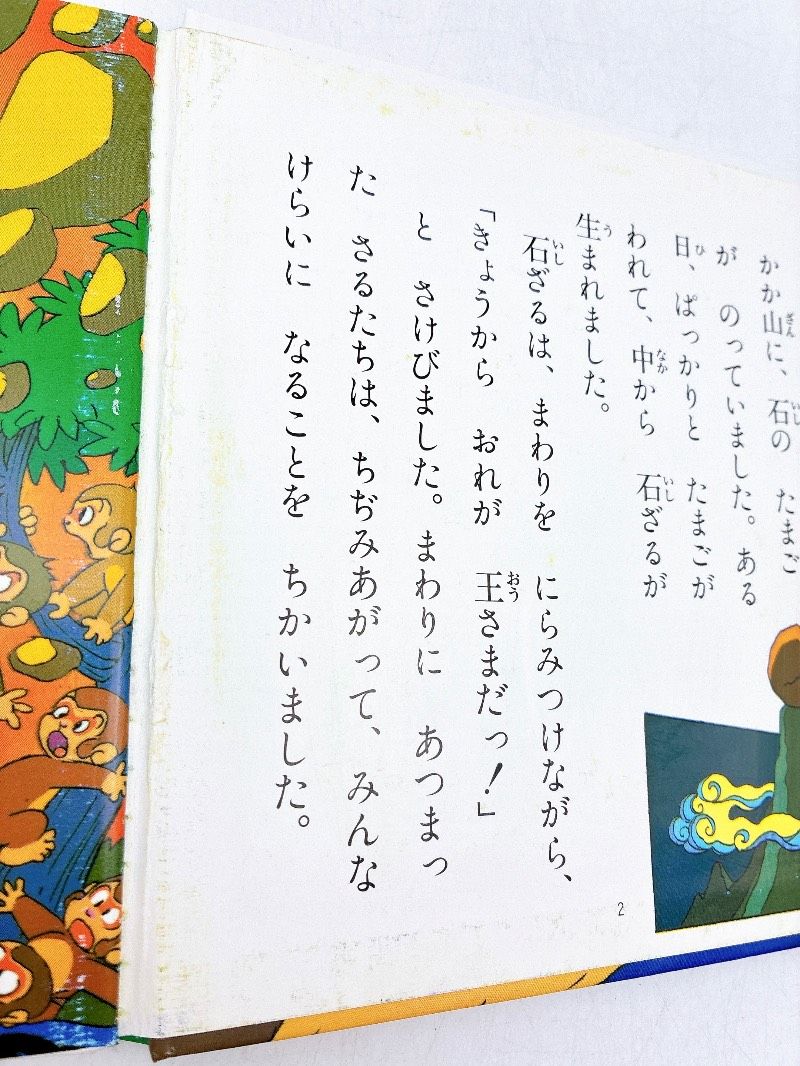 かか山に、石の たまご
が のっていました。ある
日、ぱっかりと たまごが
われて、中から 石ざるが
生まれました。
石ざるは、まわりを にらみつけながら、
「きょうから おれが 王さまだっ!」
と さけびました。まわりに あつまっ
た さるたちは、ちぢみあがって、みんな
けらいに なることを ちかいました。
2